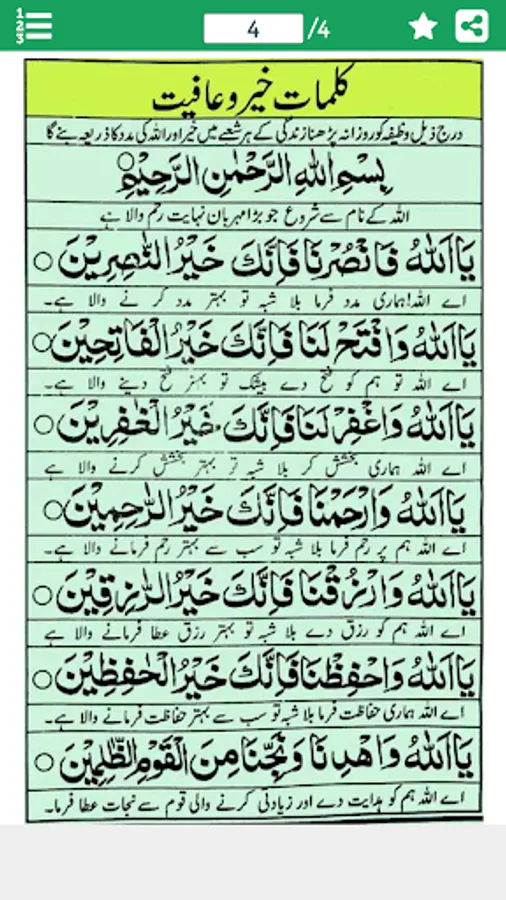 4 /4
کلمات خیر و عافیت
درج ذیل وظیفہ کو روزانہ پڑھنا زندگی کے ہر شعبے میں خیر اور اللہ کی مدد کا ذریعہ بنے گا
بِسْمِ اللهِ الرَّحْمٰنِ الرَّحِيْمِ
اللہ کے نام سے شروع جو بڑا مہربان نہایت رحم والا ہے
يَا اَللهُ فَانْصُرْنَا فَاِنَّكَ خَيْرُ النّٰصِرِيْنَ ○
اے اللہ! ہماری مدد فرما بلا شبہ تو بہتر مدد کرنے والا ہے۔
يَا اَللهُ وَافْتَحْ لَنَا فَاِنَّكَ خَيْرُ الْفَاتِحِيْنَ ○
اے اللہ تو ہم کو فتح دے بیشک تو بہتر فتح دینے والا ہے۔
يَا اَللهُ وَاغْفِرْ لَنَا فَاِنَّكَ خَيْرُ الْغٰفِرِيْنَ ○
اے اللہ ہماری بخشش کر بلا شبہ تو بہتر بخشش کرنے والا ہے
يَا اَللهُ وَارْحَمْنَا فَاِنَّكَ خَيْرُ الرّٰحِمِيْنَ ○
اے اللہ ہم پر رحم فرما بلا شبہ تو سب سے بہتر رحم فرمانے والا ہے۔
يَا اَللهُ وَارْزُقْنَا فَاِنَّكَ خَيْرُ الرّٰزِقِيْنَ ○
اے اللہ ہم کو رزق دے بلا شبہ تو بہتر رزق عطا فرمانے والا ہے
يَا اَللهُ وَاحْفِظْنَا فَاِنَّكَ خَيْرُ الْحٰفِظِيْنَ ○
اے اللہ ہماری حفاظت فرما بلا شبہ تو سب سے بہتر حفاظت فرمانے والا ہے۔
يَا اَللهُ وَاهْدِنَا وَنَجِّنَا مِنَ الْقَوْمِ الظّٰلِمِيْنَ ○
اے اللہ ہم کو ہدایت دے اور زیادتی کرنے والی قوم سے نجات عطا فرما۔